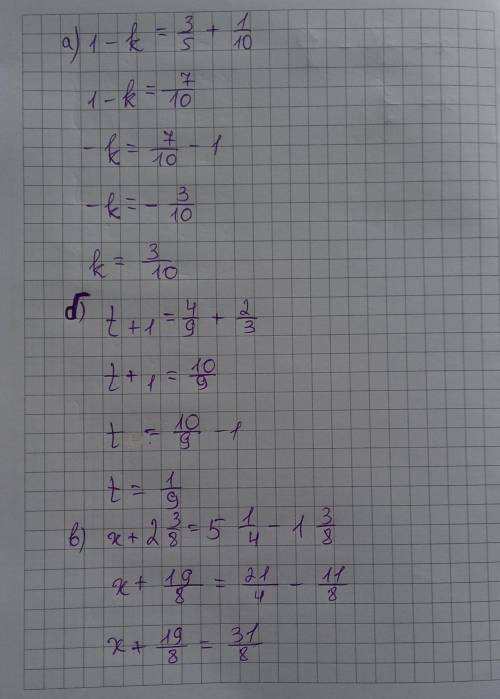 а) 1 - k = 3/5 + 1/10
1 - k = 7/10
-k = 7/10 - 1
-k = - 3/10
k = 3/10
б) t + 1 = 4/9 + 2/3
t + 1 = 10/9
t = 10/9 - 1
t = 1/9
в) x + 2 3/8 = 5 1/4 - 1 3/8
x + 19/8 = 21/4 - 11/8
x + 19/8 = 31/8